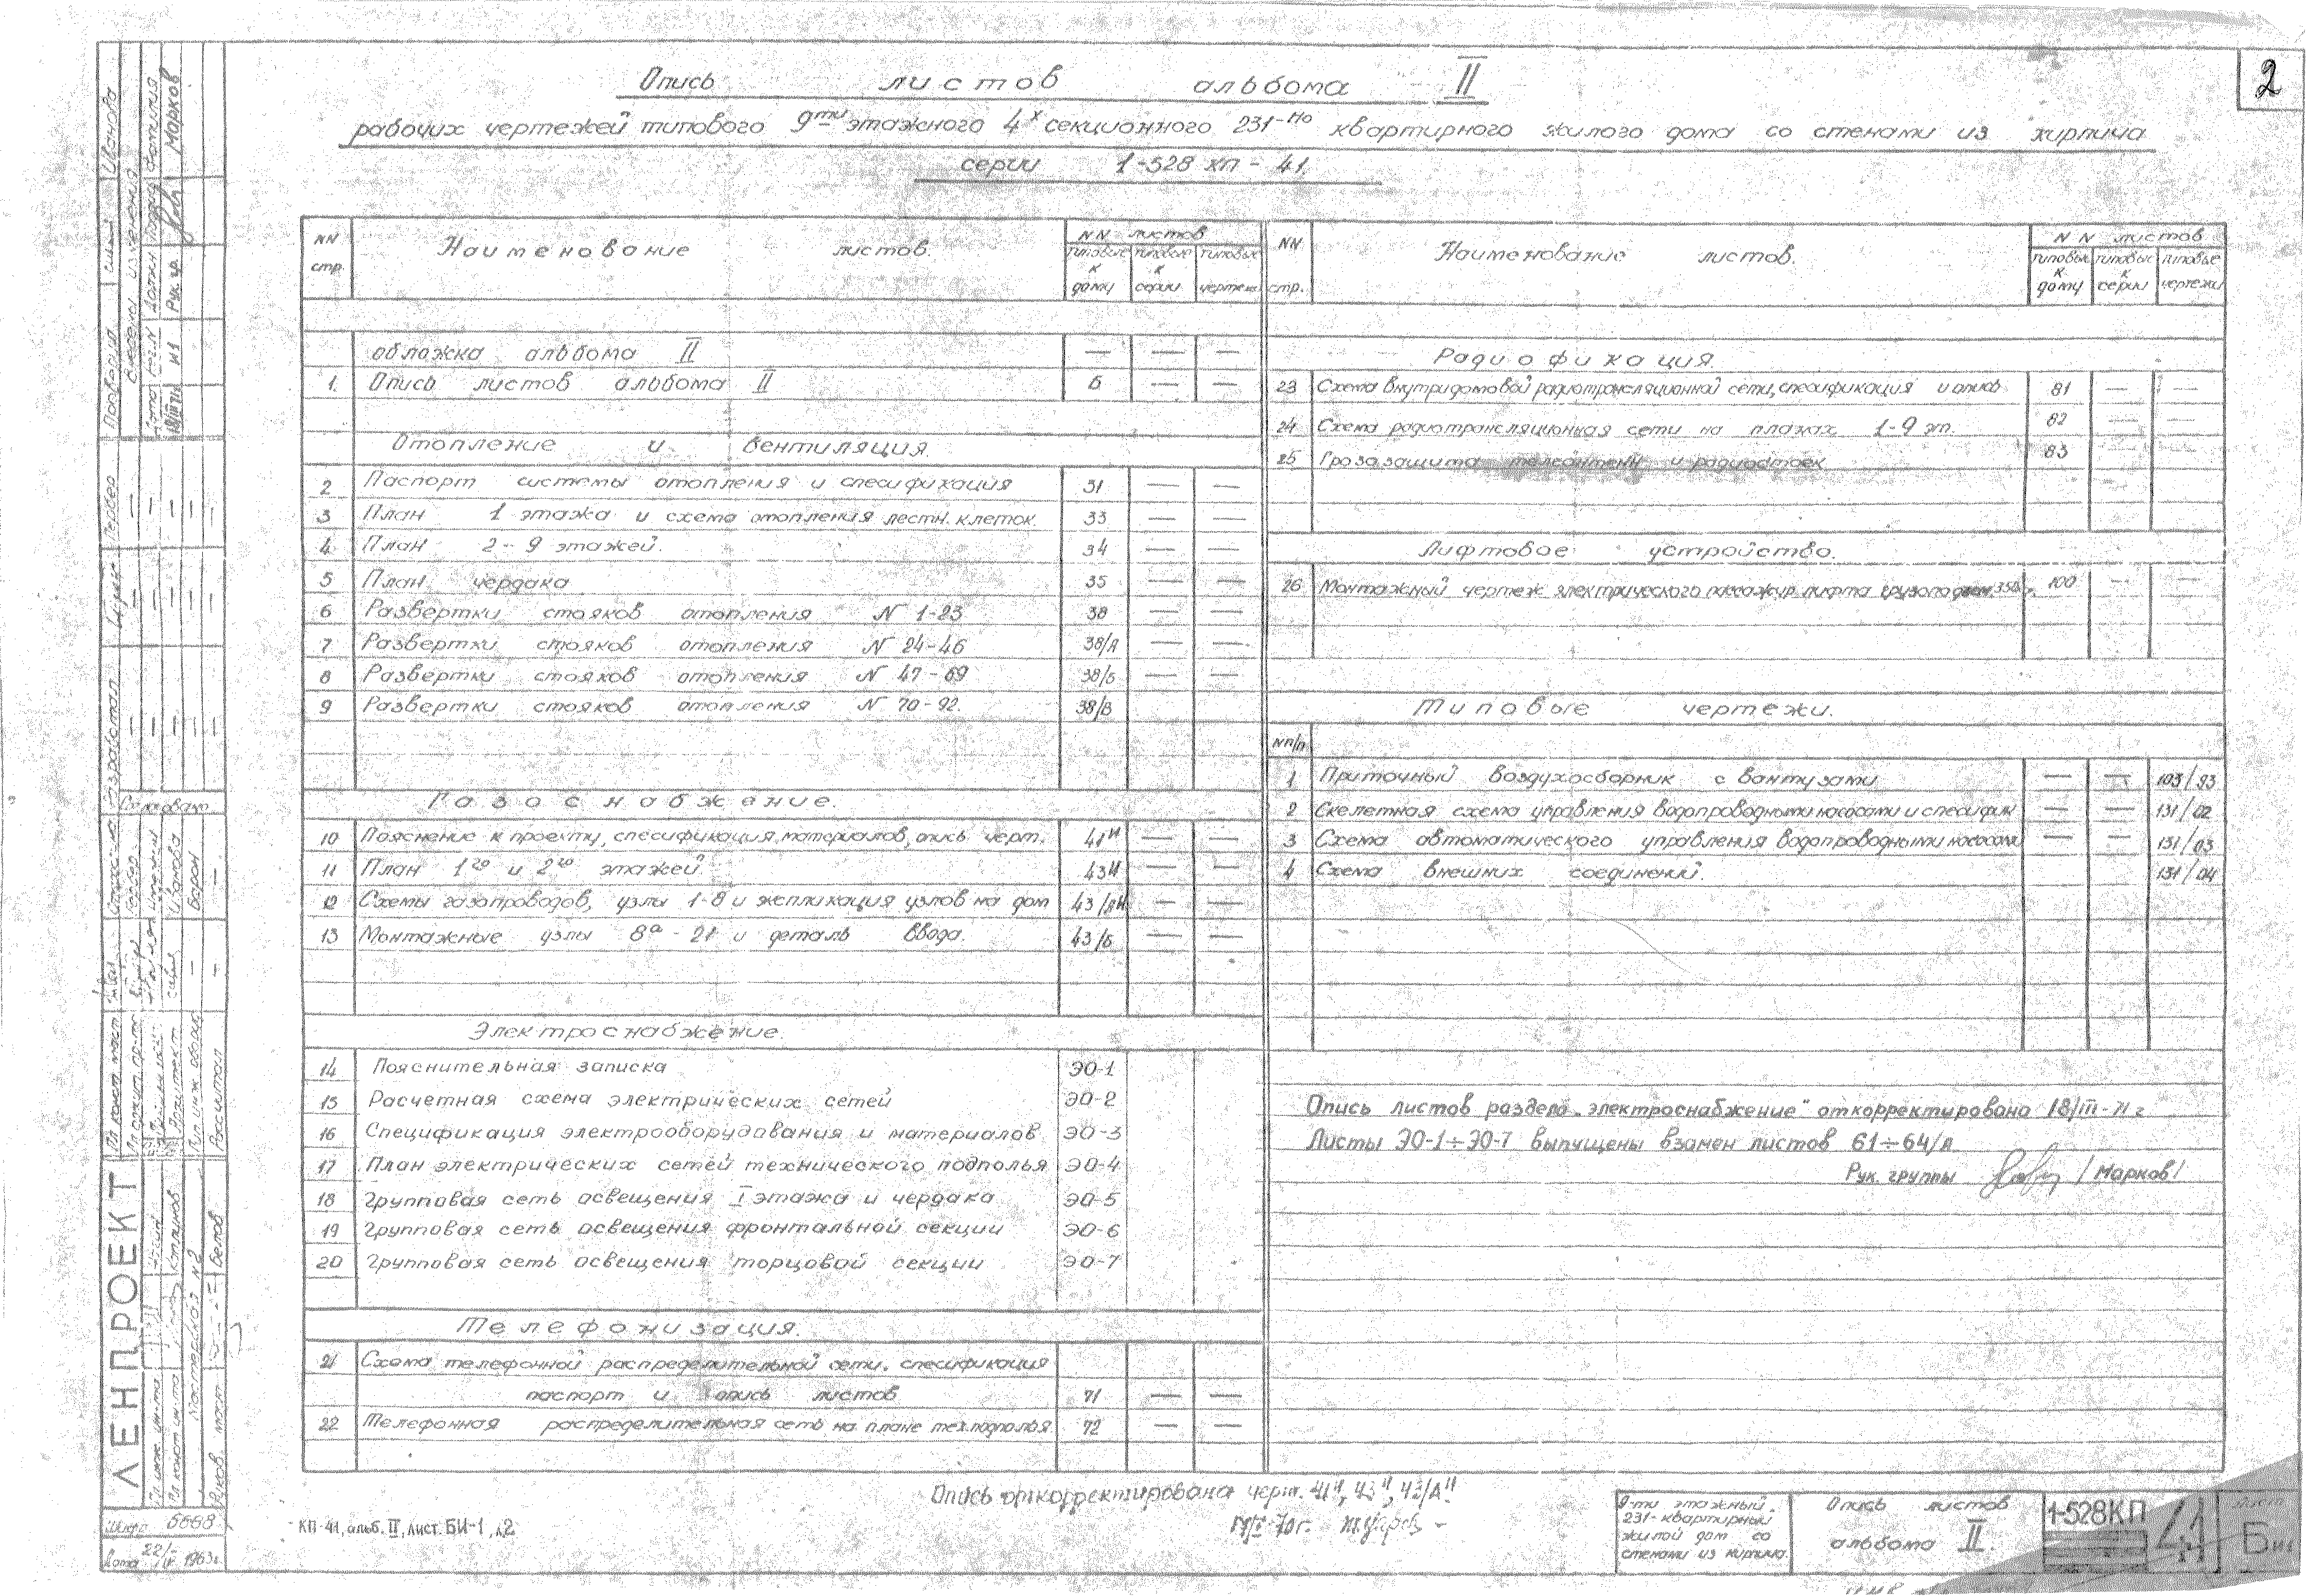 2
Опись листов альбома II
рабочих чертежей типового 9ти этажного 4х секционного 231-но квартирного жилого дома со стенами из кирпича
серии 1-528 кп - 41.
NN стр.
Наименование листов.
NN листов
типовые к дому
типовые к серии
типовые чертежи
обложка альбома II — — —
1. Опись листов альбома II Б — —
Отопление и вентиляция.
2 Паспорт системы отопления и спесификация 31 — —
3 План 1 этажа и схема отопления лестн. клеток. 33 — —
4 План 2-9 этажей. 34 — —
5 План чердака 35 — —
6 Развертки стояков отопления N 1-23 38 — —
7 Развертки стояков отопления N 24-46 38/А — —
8 Развертки стояков отопления N 47-69 38/Б — —
9 Развертки стояков отопления N 70-92. 38/В
Газоснабжение.
10 Пояснение к проекту, спесификация материалов, опись черт. 41И — —
11 План 1го и 2го этажей. 43И — —
12 Схемы газопроводов, узлы 1-8 и экспликация узлов на дом 43/АИ — —
13 Монтажные узлы 8а - 21 и деталь ввода. 43/Б — —
Электроснабжение.
14 Пояснительная записка ЭО-1
15 Расчетная схема электрических сетей ЭО-2
16 Спецификация электрооборудования и материалов ЭО-3
17 План электрических сетей технического подполья ЭО-4
18 Групповая сеть освещения I этажа и чердака ЭО-5
19 Групповая сеть освещения фронтальной секции ЭО-6
20 Групповая сеть освещения торцовой секции ЭО-7
Телефонизация.
21 Схема телефонной распределительной сети. спесификация
паспорт и опись листов 71 — —
22 Телефонная распределительная сеть на плане тех.подполья 72 — —
NN стр.
Наименование листов.
NN листов
типовые к дому
типовые к серии
типовые чертежи
Радиофикация.
23 Схема внутридомовой радиотрансляционной сети, спесификация и опись 81 — —
24 Схема радиотрансляционная сети на планах 1-9 эт. 82 — —
25 Грозазащита телеантенн и радиостоек 83
Лифтовое устройство.
26 Монтажный чертеж электрического пассажир. лифта 100 — —
Типовые чертежи.
N п/п
1 Приточный воздухосборник с вантузами — — 103/93
2 Скелетная схема управления водопроводными насосами и специфик — — 131/02
3 Схема автоматического управления водопроводными насосами — — 131/03
4 Схема внешних соединений. 131/04
Опись листов раздела „электроснабжение" откорректирована 18/III-71 г
Листы ЭО-1÷ЭО-7 выпущены взамен листов 61÷64/А
Рук. группы /Марков/
Опись откорректирована черт. 41И, 43И, 43/АИ
КП-41, альб. II, лист. БИ-1, л.2
9-ти этажный.
231-квартирный
жилой дом со
стенами из кирпича.
Опись листов
альбома II.
1-528КП
41
Лист
Би1
ЛЕНПРОЕКТ
Мастерская №2
Шифр 5668
Дата 22/IV 1963г.
Внесены изменения
Рук. гр. Марков